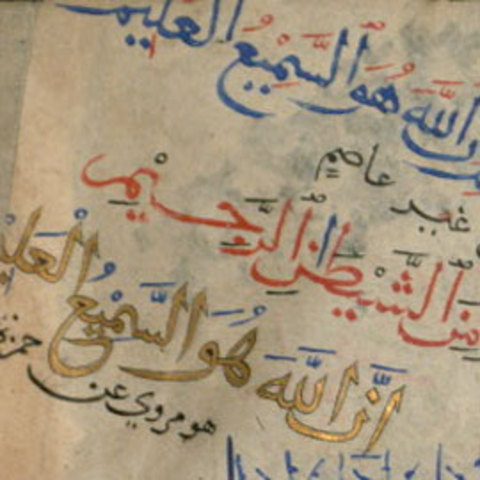 نَّ اللَّهَ هُوَ السَّمِيعُ العَلِيمُ
غير عاصم
مِنَ الشَّيْطَٰنِ الرَّجِيمِ
إِنَّ اللَّهَ هُوَ السَّمِيعُ العَلِي
هو مروي عن حمزة